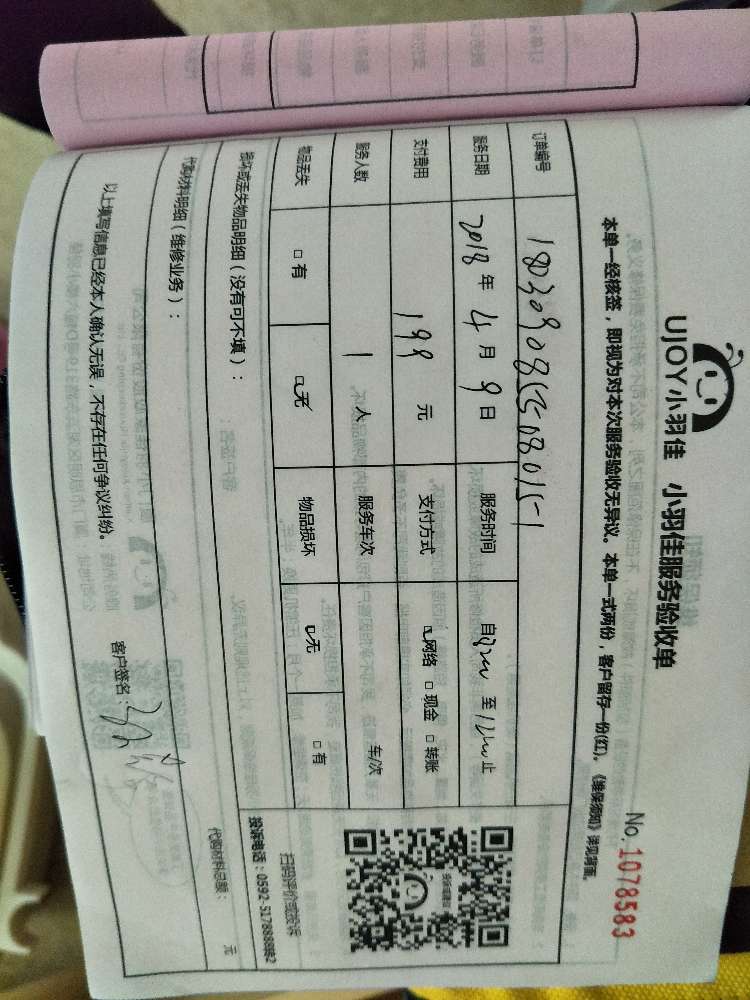 UJOY小羽佳 小羽佳服务验收单
No. 1078583
本单一经核签，即视为对本次服务验收无异议。本单一式两份，客户留存一份(红)。《维保须知》详见背面。
订单编号
服务日期 2018 年 4 月 9 日 服务时间 自 至 止
支付费用 199 元 支付方式 网络 □ 现金 □ 转账
服务人数 1 人 服务车次 车/次
物品丢失 □ 有 □ 无 物品损坏 □ 无 □ 有
损坏或丢失物品明细（没有可不填）：
代购材料明细（维修业务）：
代购材料总额： 元
扫码评价或投诉
投诉电话：0592-5178888转2
以上填写信息已经本人确认无误，不存在任何争议纠纷。
客户签名：